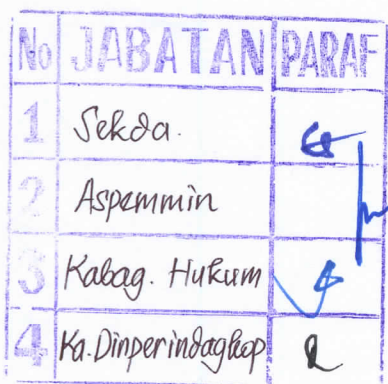 No JABATAN PARAF
1 Sekda.
2 Aspemmin
3 Kabag. Hukum
4 Ka. Dinperindagkop